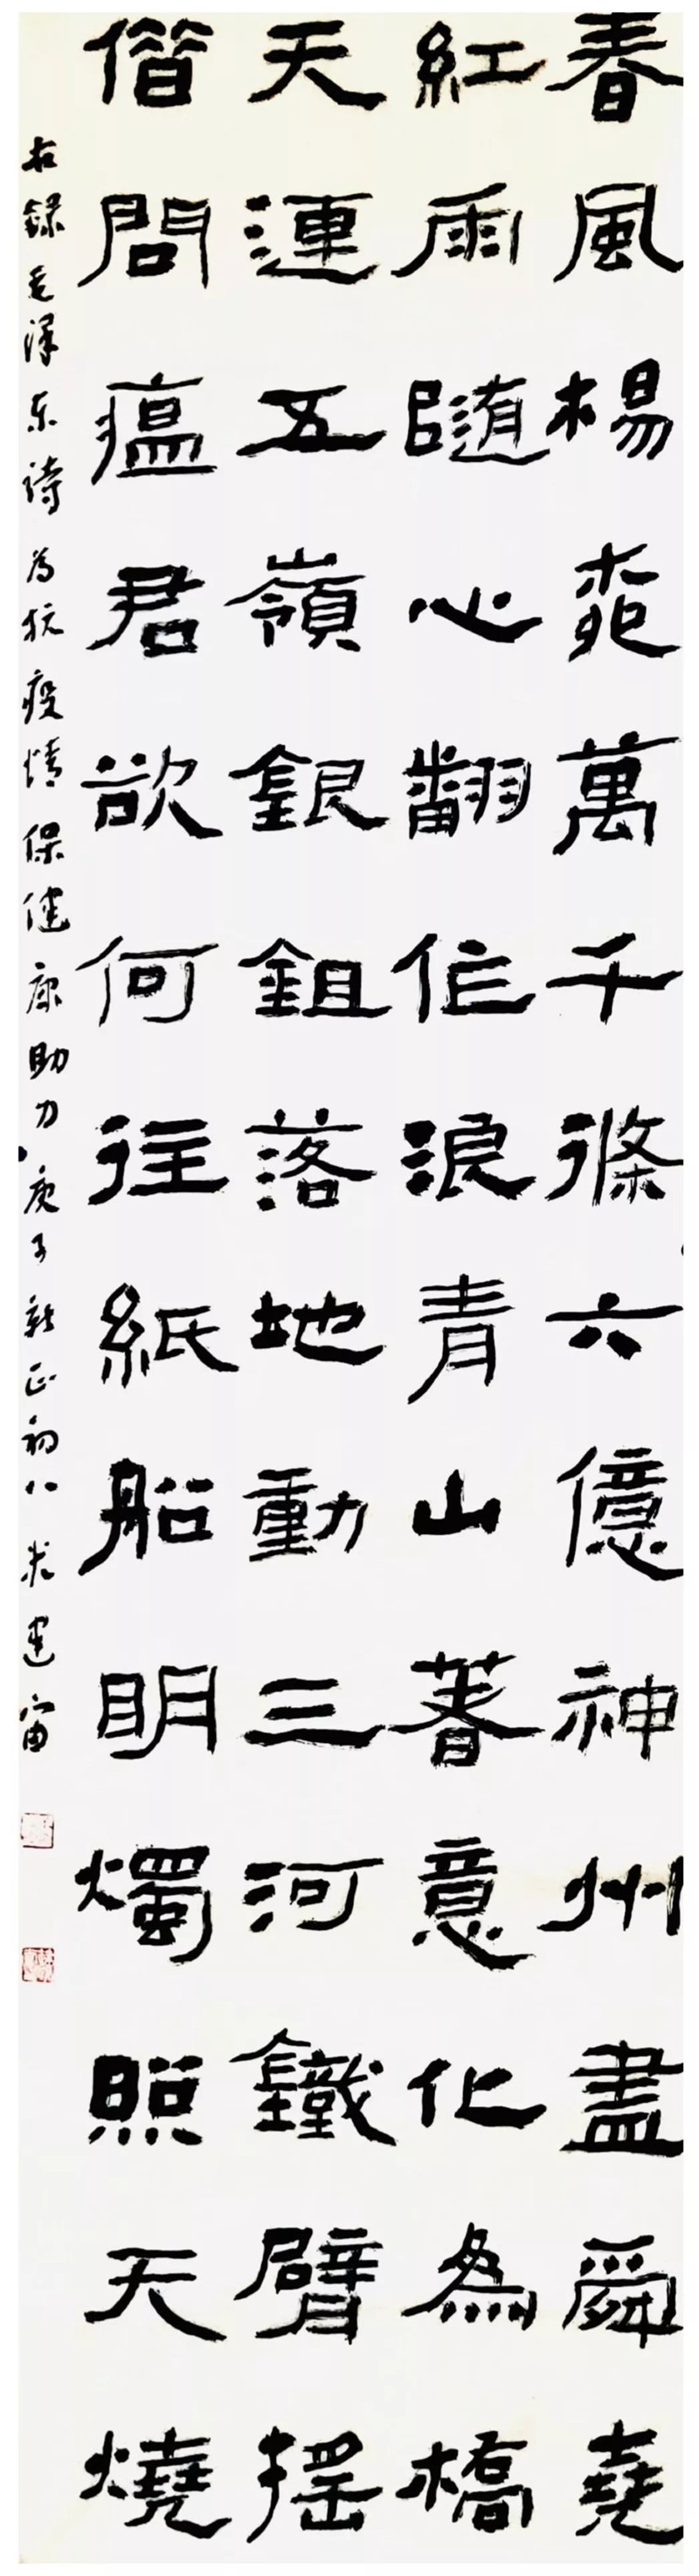 春風楊桞萬千條六億神州盡舜堯
紅雨隨心翻作浪青山著意化為橋
天連五嶺銀鉏落地動三河鐵臂搖
偕問瘟君欲何往紙船明燭照天燒
右録毛泽东诗为抗疫情保健康助力庚子新正初八米建宙